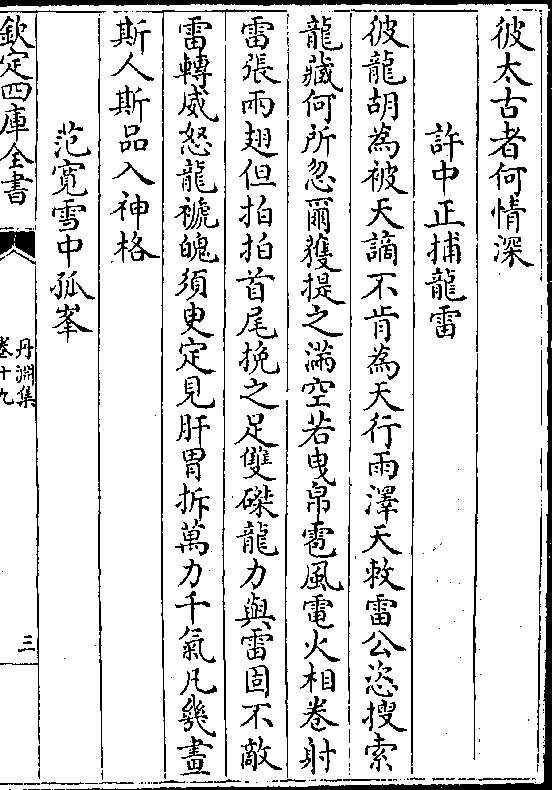 彼太古者何情深
許中正捕龍雷
彼龍胡為被天謫不肯為天行雨澤天敕雷公恣搜索
龍藏何所忽爾獲提之滿空若曳帛雹風電火相卷射
雷張兩翅但拍拍首尾挽之足雙磔龍力與雷固不敵
雷轉威怒龍褫魄須臾定見肝胃拆萬力千氣凡幾畫
斯人斯品入神格
范寬雪中孤峯
欽定四庫全書
丹淵集
卷十九
三